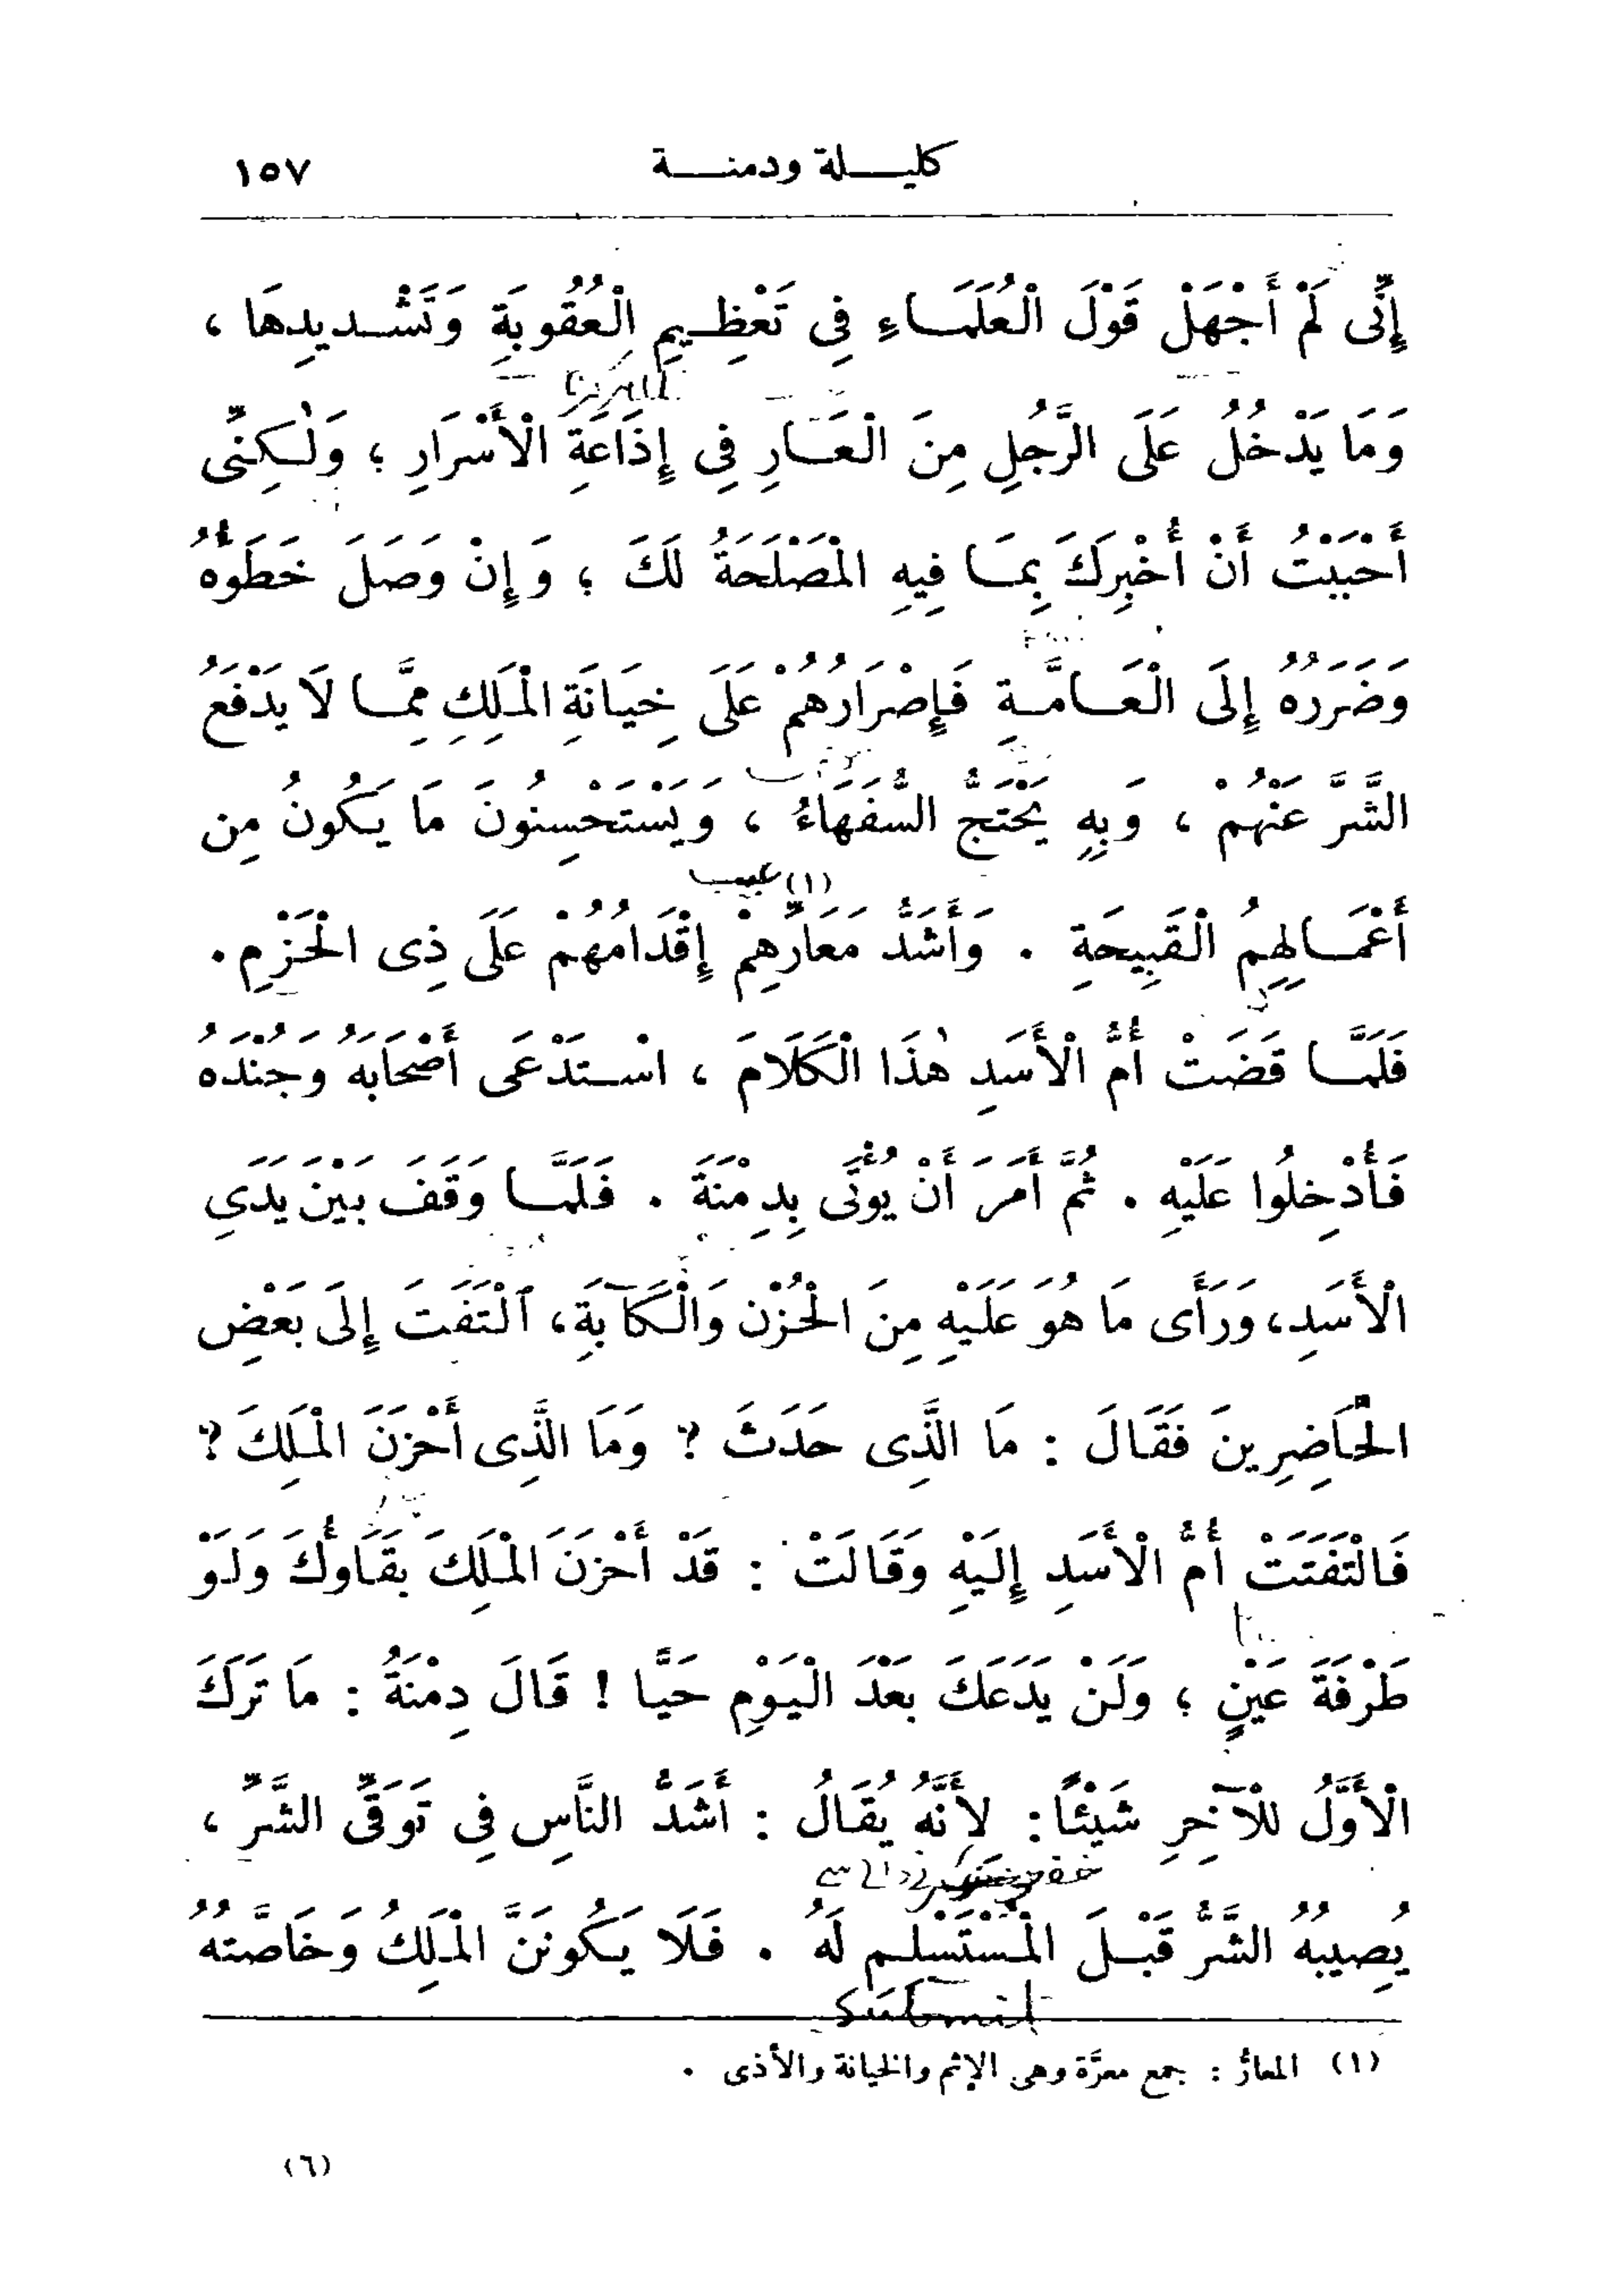 كليلة ودمنة ١٥٧
إِنِّى لَمْ أَجْهَلْ قَوْلَ الْعُلَمَاءِ فِى تَعْظِيمِ الْعُقُوبَةِ وَتَشْدِيدِهَا ،
وَمَا يَدْخُلُ عَلَى الرَّجُلِ مِنَ الْعَارِ فِى إِذَاعَةِ الْأَسْرَارِ ؛ وَلٰكِنِّى
أَحْبَبْتُ أَنْ أُخْبِرَكَ بِمَا فِيهِ الْمَصْلَحَةُ لَكَ ؛ وَإِنْ وَصَلَ خَطَؤُهُ
وَضَرَرُهُ إِلَى الْعَامَّةِ فَإِصْرَارُهُمْ عَلَى خِيَانَةِ الْمَلِكِ مِمَّا لَا يَدْفَعُ
الشَّرَّ عَنْهُمْ ، وَبِهِ يَحْتَجُّ السُّفَهَاءُ ، وَيَسْتَحْسِنُونَ مَا يَكُونُ مِن
(١) عيب
أَعْمَالِهِمُ الْقَبِيحَةِ . وَأَشَدُّ مَعَارِّهِمْ إِقْدَامُهُمْ عَلَى ذِى الْحَزْمِ .
فَلَمَّا قَضَتْ أُمُّ الْأَسَدِ هٰذَا الْكَلَامَ ، اسْتَدْعَى أَصْحَابَهُ وَجُنْدَهُ
فَأُدْخِلُوا عَلَيْهِ . ثُمَّ أَمَرَ أَنْ يُؤْتَى بِدِمْنَةَ . فَلَمَّا وَقَفَ بَيْنَ يَدَىِ
الْأَسَدِ، وَرَأَى مَا هُوَ عَلَيْهِ مِنَ الْحُزْنِ وَالْكَآبَةِ، ٱلْتَفَتَ إِلَى بَعْضِ
الْحَاضِرِينَ فَقَالَ : مَا الَّذِى حَدَثَ ؟ وَمَا الَّذِى أَحْزَنَ الْمَلِكَ ؟
فَالْتَفَتَتْ أُمُّ الْأَسَدِ إِلَيْهِ وَقَالَتْ : قَدْ أَحْزَنَ الْمَلِكَ بَقَاؤُكَ وَلَوْ
طَرْفَةَ عَيْنٍ ؛ وَلَنْ يَدَعَكَ بَعْدَ الْيَوْمِ حَيًّا ! قَالَ دِمْنَةُ : مَا تَرَكَ
الْأَوَّلُ لِلْآخِرِ شَيْئًا : لِأَنَّهُ يُقَالُ : أَشَدُّ النَّاسِ فِى تَوَقِّى الشَّرِّ ،
يُصِيبُهُ الشَّرُّ قَبْلَ الْمُسْتَسْلِمِ لَهُ . فَلَا يَكُونَنَّ الْمَلِكُ وَخَاصَّتُهُ
submit
(١) المعارُّ : جمع معرَّة وهى الإثم والخيانة والأذى .
(٦)